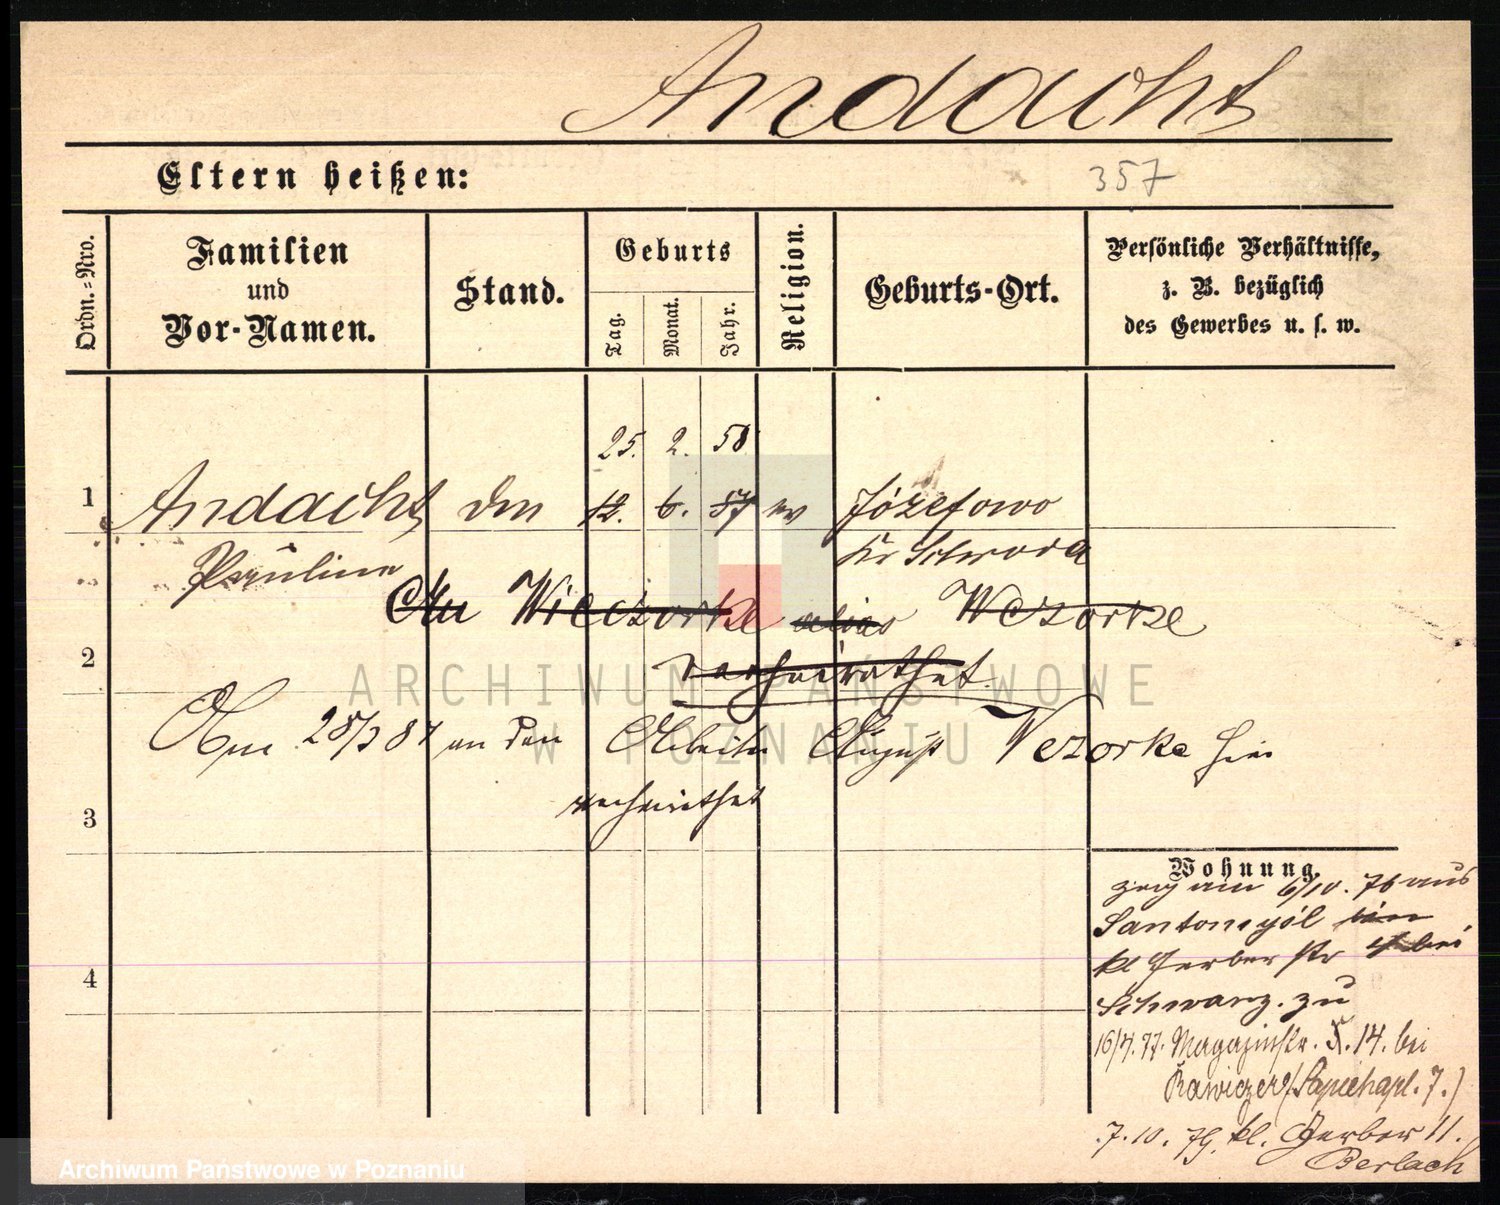 Andacht
Eltern heißen:
357
Ordn.-Nro.
Familien
und
Vor-Namen.
Stand.
Geburts
Tag.
Monat.
Jahr.
Religion.
Geburts-Ort.
Persönliche Verhältnisse,
z. B. bezüglich
des Gewerbes u. s. w.
25. 2. 58
1 Andacht 12. 6. 57 ev Józefowo
Pauline Kr Schroda
An Wieczorke alias Wezorke
2
verheirathet
Am 28/3 87 an den Arbeiter August Vezorke hier
verheirathet
3
Wohnung.
zog am 6/10. 76 aus
Santomysl
kl Gerber str 4 bei
Schwarz. zu
16/4. 77. Magazinstr. 14. bei
Rawiczer (Sapiehapl. 7.)
4
7. 10. 79. kl. Gerber 11.
Berlach
ARCHIWUM PAŃSTWOWE
W POZNANIU
Archiwum Państwowe w Poznaniu